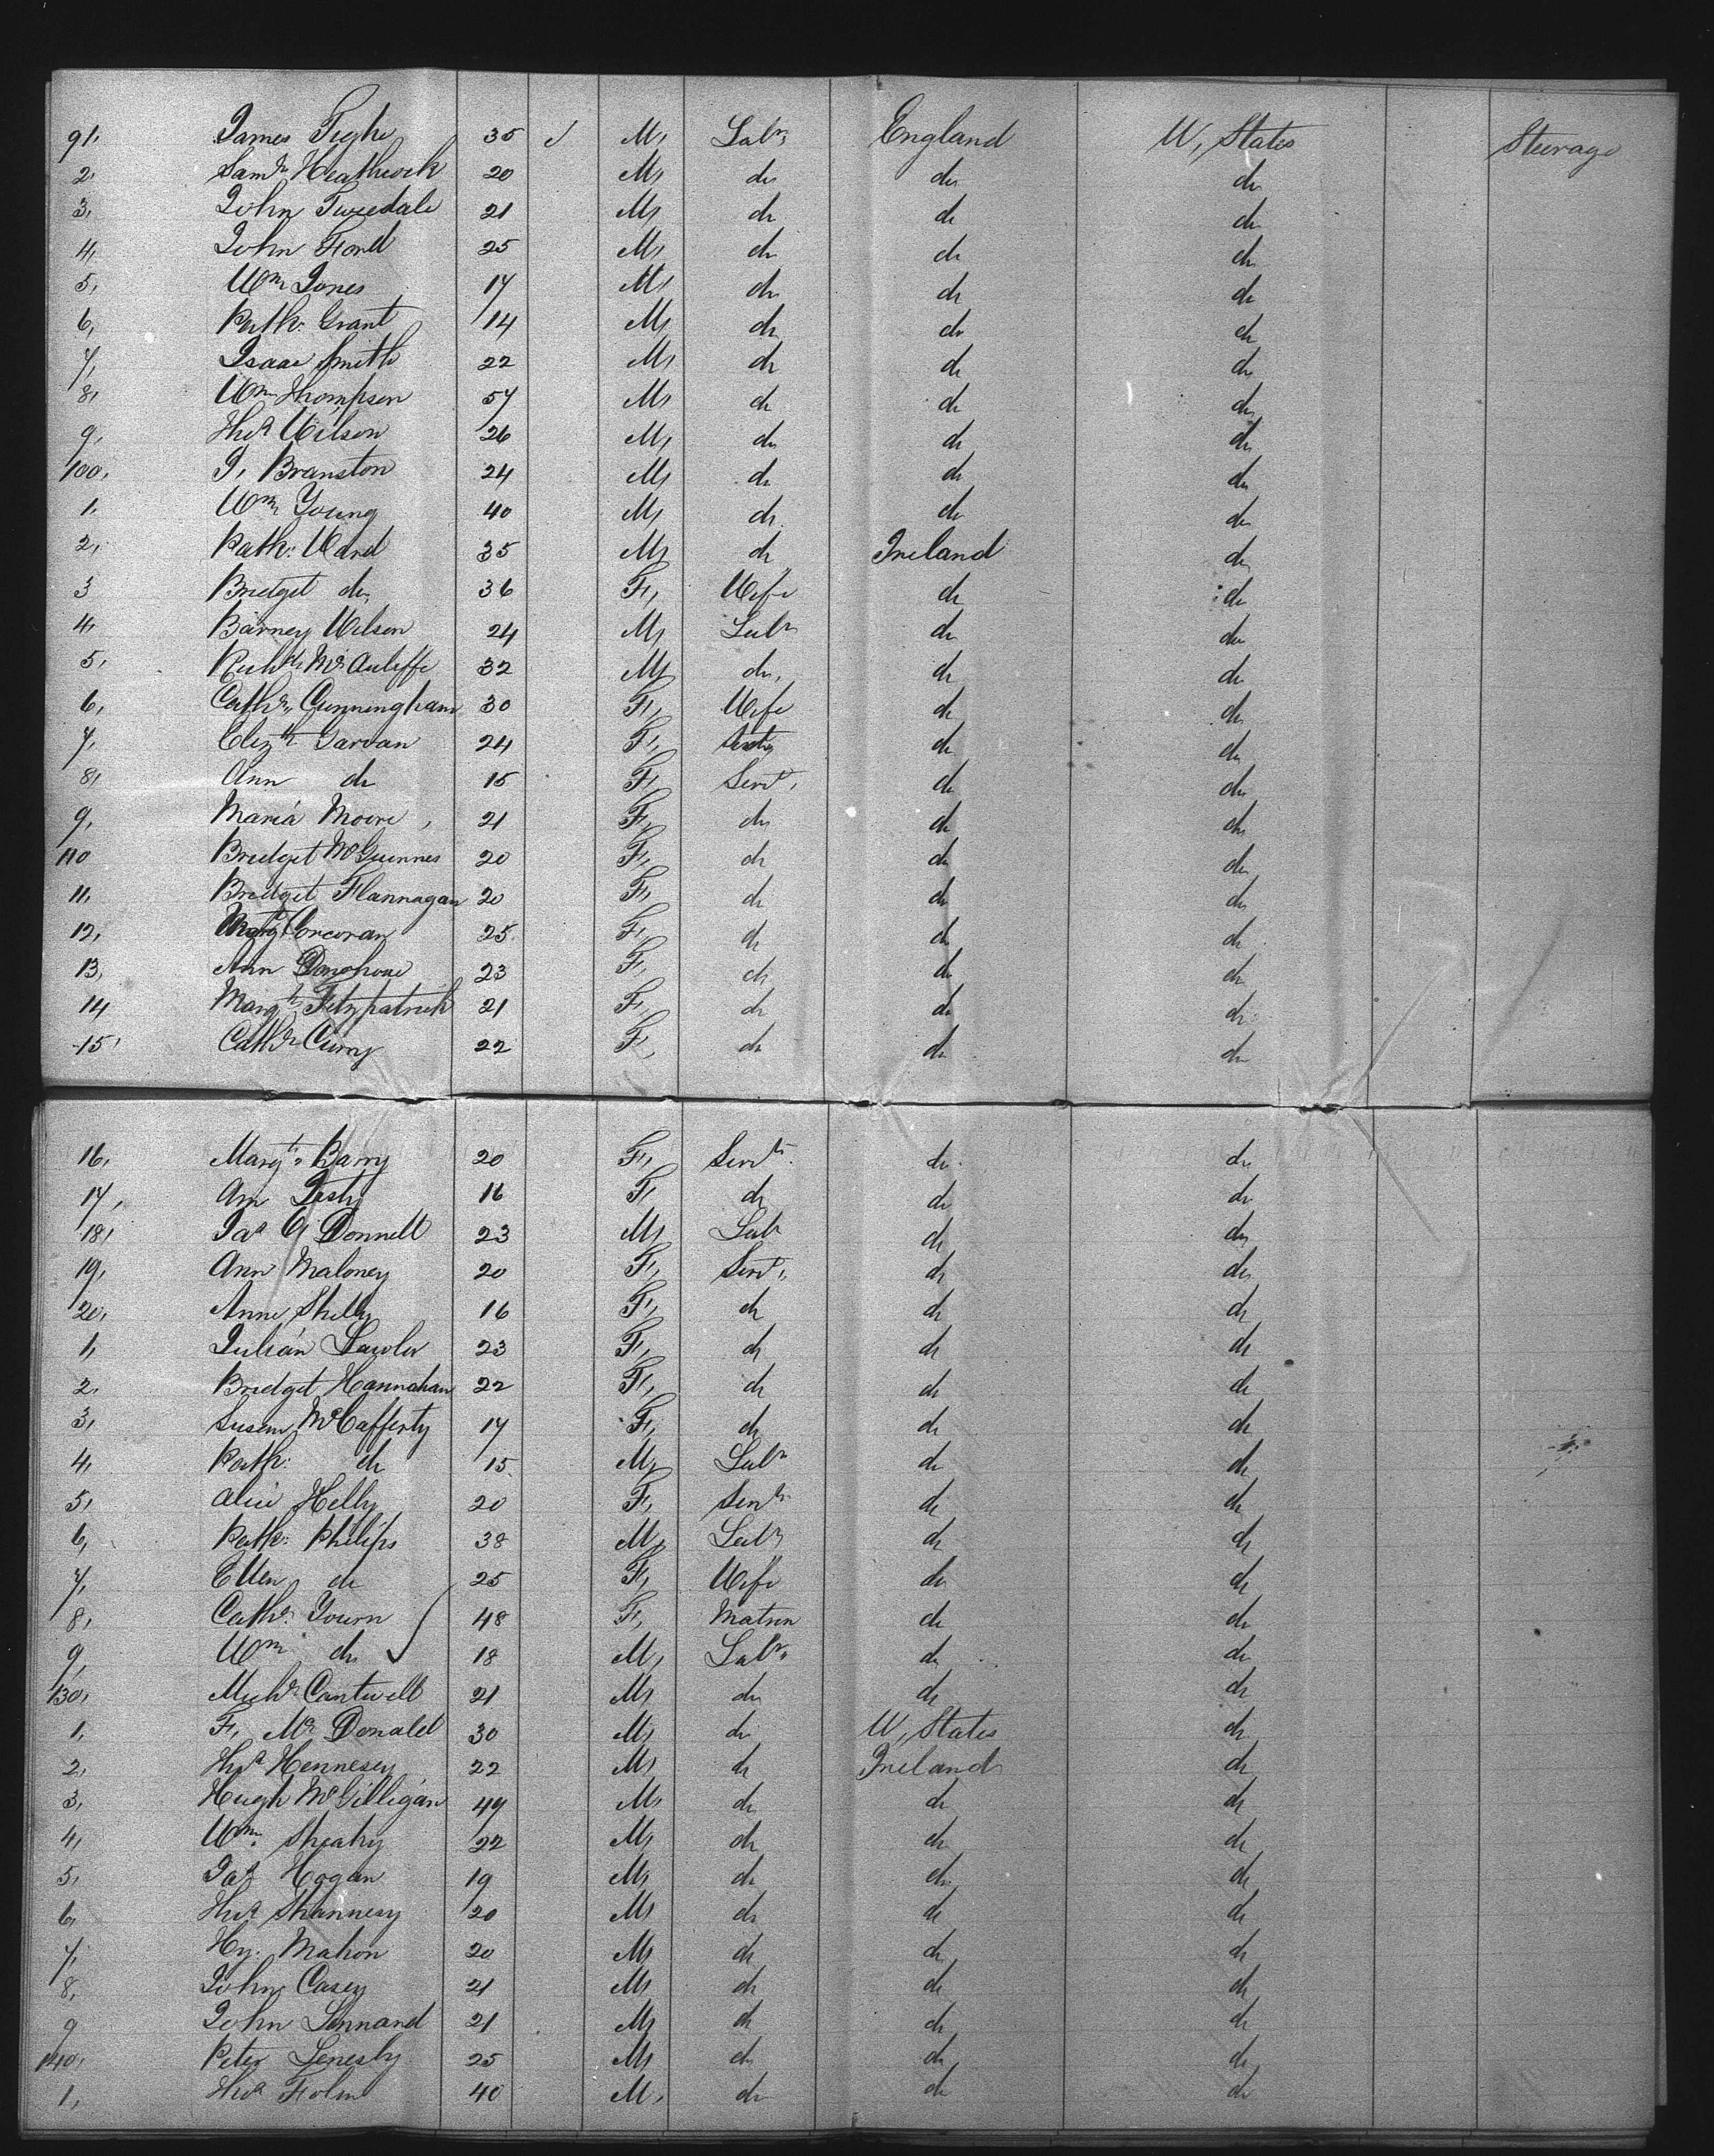 91, James Tighe 35 M, Labr, England U, States Steerage
2, Saml. Heathcock 20 M, do do do
3, John Tweedale 21 M, do do do
4, John Ford 25 M, do do do
5, Wm Jones 17 M, do do do
6, Patk. Grant 14 M, do do do
7, Isaac Smith 22 M, do do do
8, Wm Thompson 57 M, do do do
9, Thos Wilson 26 M, do do do
100, J, Branston 24 M, do do do
1, Wm Young 40 M, do do do
2, Patk: Ward 35 M, do Ireland do
3 Bridget do, 36 F, Wife do do
4, Barney Wilson 24 M, Labr do do
5, Richd. McAuliffe 32 M, do, do do
6, Cathn, Cunningham 30 F, Wife do do
7, Elizth Garvan 24 F, do do
8, Ann do 15 F, Servt, do do
9, Maria Moore, 21 F, do do do
110 Bridget McGuinnes 20 F, do do do
11, Bridget Flannagan 20 F, do do do
12, Corcoran 25 F, do do do
13, Ann Donohoue 23 F, do do do
14 Margt. Fitzpatrick 21 F, do do do
15, Cathn Curry 22 F, do do do
16, Margt. Barry 20 F, Servt. do do
17, Ann 16 F, do do do
18, Jas O'Donnell 23 M, Labr do do
19, Ann Maloney 20 F, Servt, do do
20, Anne Shelly 16 F, do do do
1, Julian Lawlor 23 F, do do do
2, Bridget Hannahan 22 F, do do do
3, Susan McCafferty 17 F, do do do
4, Patk: do 15 M, Labr do do
5, Alice Helly 20 F, Servt. do do
6, Patk: Philips 38 M, Labr, do do
7, Ellen do 25 F, Wife do do
8, Cathn. Yourn 48 F, Matron do do
9, Wm do 18 M, Labr, do do
130, Michl. Cantwell 21 M, do do do
1, F, McDonald 30 M, do U, States do
2, Thos Hennesey 22 M, do Ireland do
3, Hugh McGilligan 49 M, do do do
4, Wm. Sheahy 22 M, do do do
5, Jas Hogan 19 M, do do do
6, Thos Shannesy 20 M, do do do
7, Hy. Mahon 20 M, do do do
8, John Casey 21 M, do do do
9 John Lennard 21 M, do do do
140, Peter Lenesby 25 M, do do do
1, Thos Folm 40 M, do do do